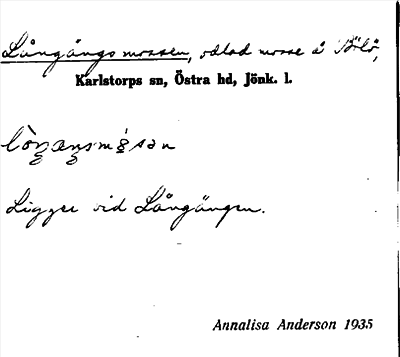 Långängsmossen, odlad mosse å Börlö,
Karlstorps sn, Östra hd, Jönk. l.
Ligger vid Långängen.
Annalisa Anderson 1935